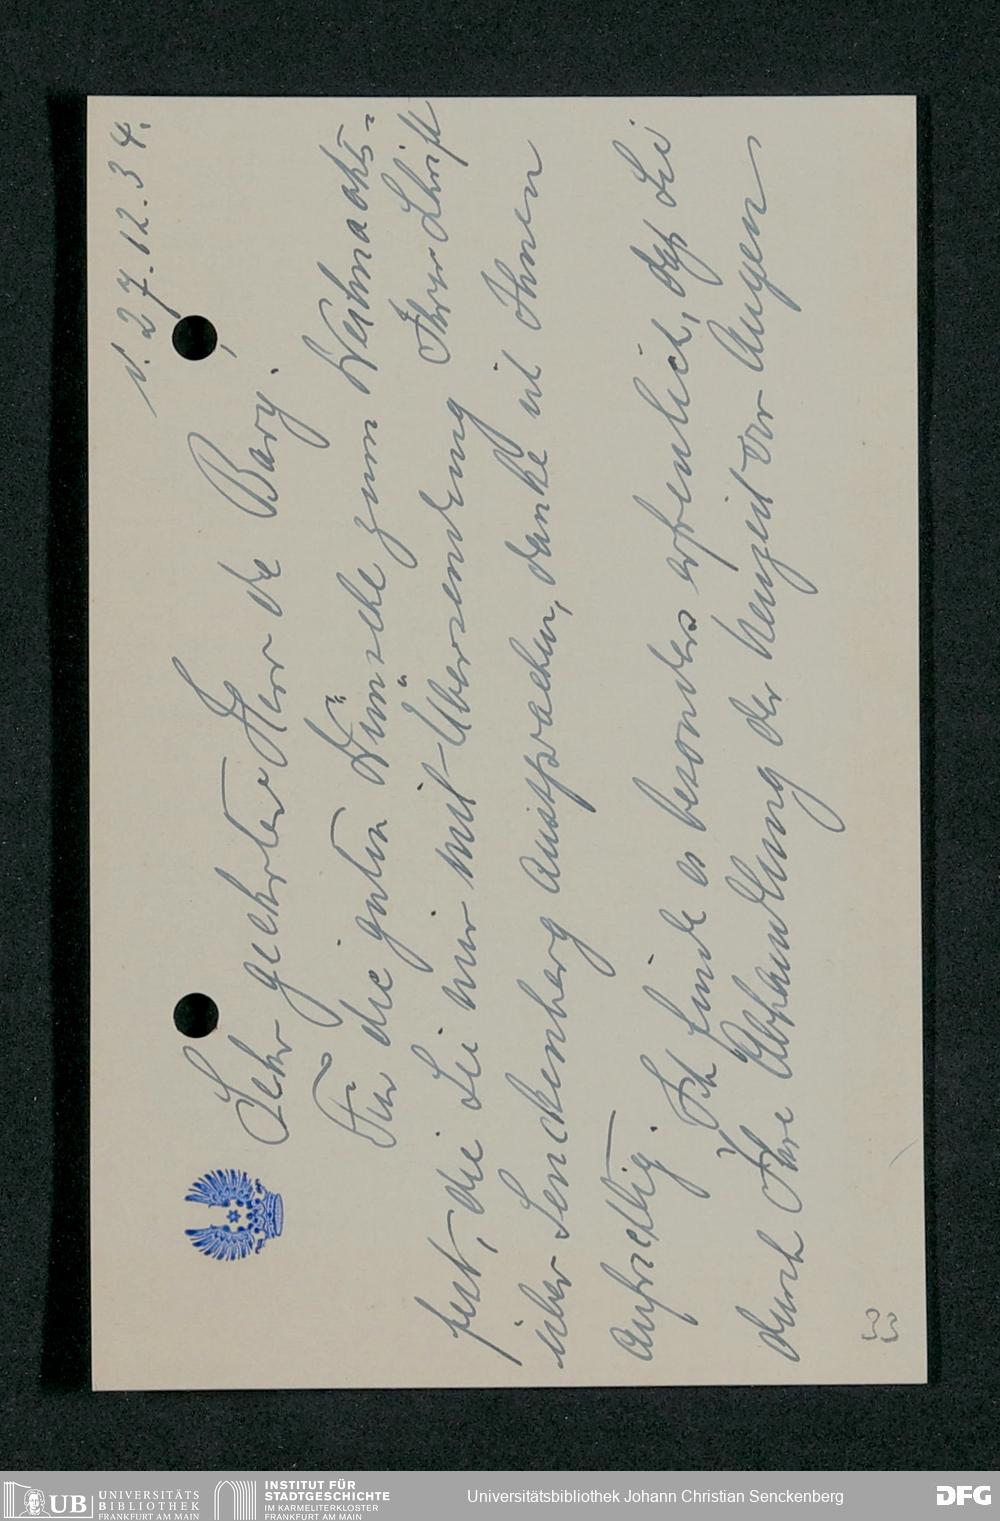 N. 27.12.34.
Sehr geehrter Herr de Bary,
Für die guten Wünsche zum Weihnachts-
fest, die Sie mir mit Übersendung Ihrer Schrift
über Senckenberg aussprachen, danke ich Ihnen
aufrichtig.
Ich finde es besonders erfreulich, daß Sie
durch Ihre Abhandlung der Neuzeit vor Augen
33
UB UNIVERSITÄTS
BIBLIOTHEK
FRANKFURT AM MAIN
INSTITUT FÜR
STADTGESCHICHTE
IM KARMELITERKLOSTER
FRANKFURT AM MAIN
Universitätsbibliothek Johann Christian Senckenberg
DFG